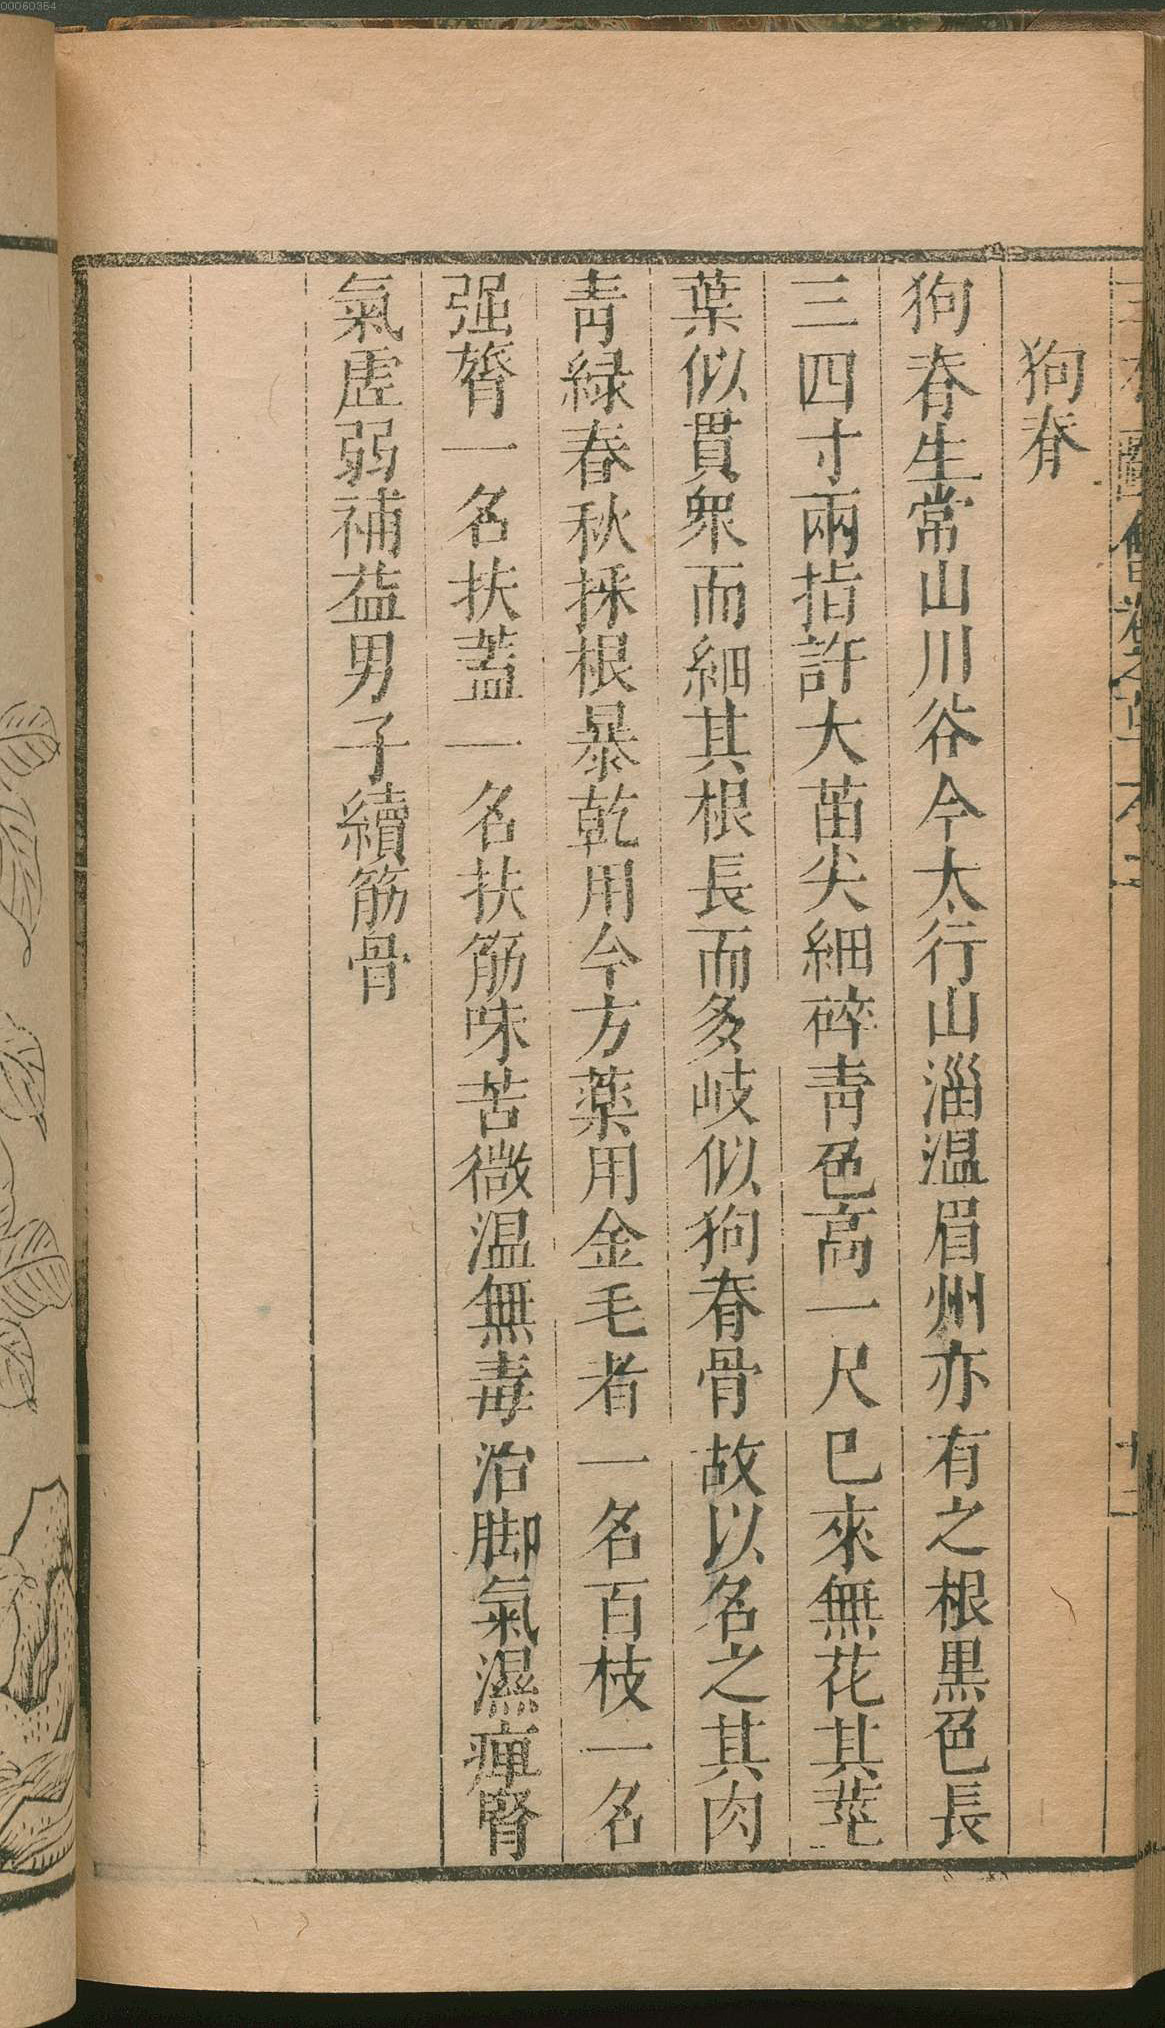 00060364
狗脊
狗脊生常山川谷今太行山淄温眉州亦有之根黒色長
三四寸兩指許大苗尖細碎青色高一尺已來無花其莖
葉似貫衆而細其根長而多岐似狗脊骨故以名之其肉
青緑春秋採根暴乾用今方藥用金毛者一名百枝一名
强膂一名扶蓋一名扶筋味苦微温無毒治脚氣濕痺腎
氣虚弱補益男子續筋骨